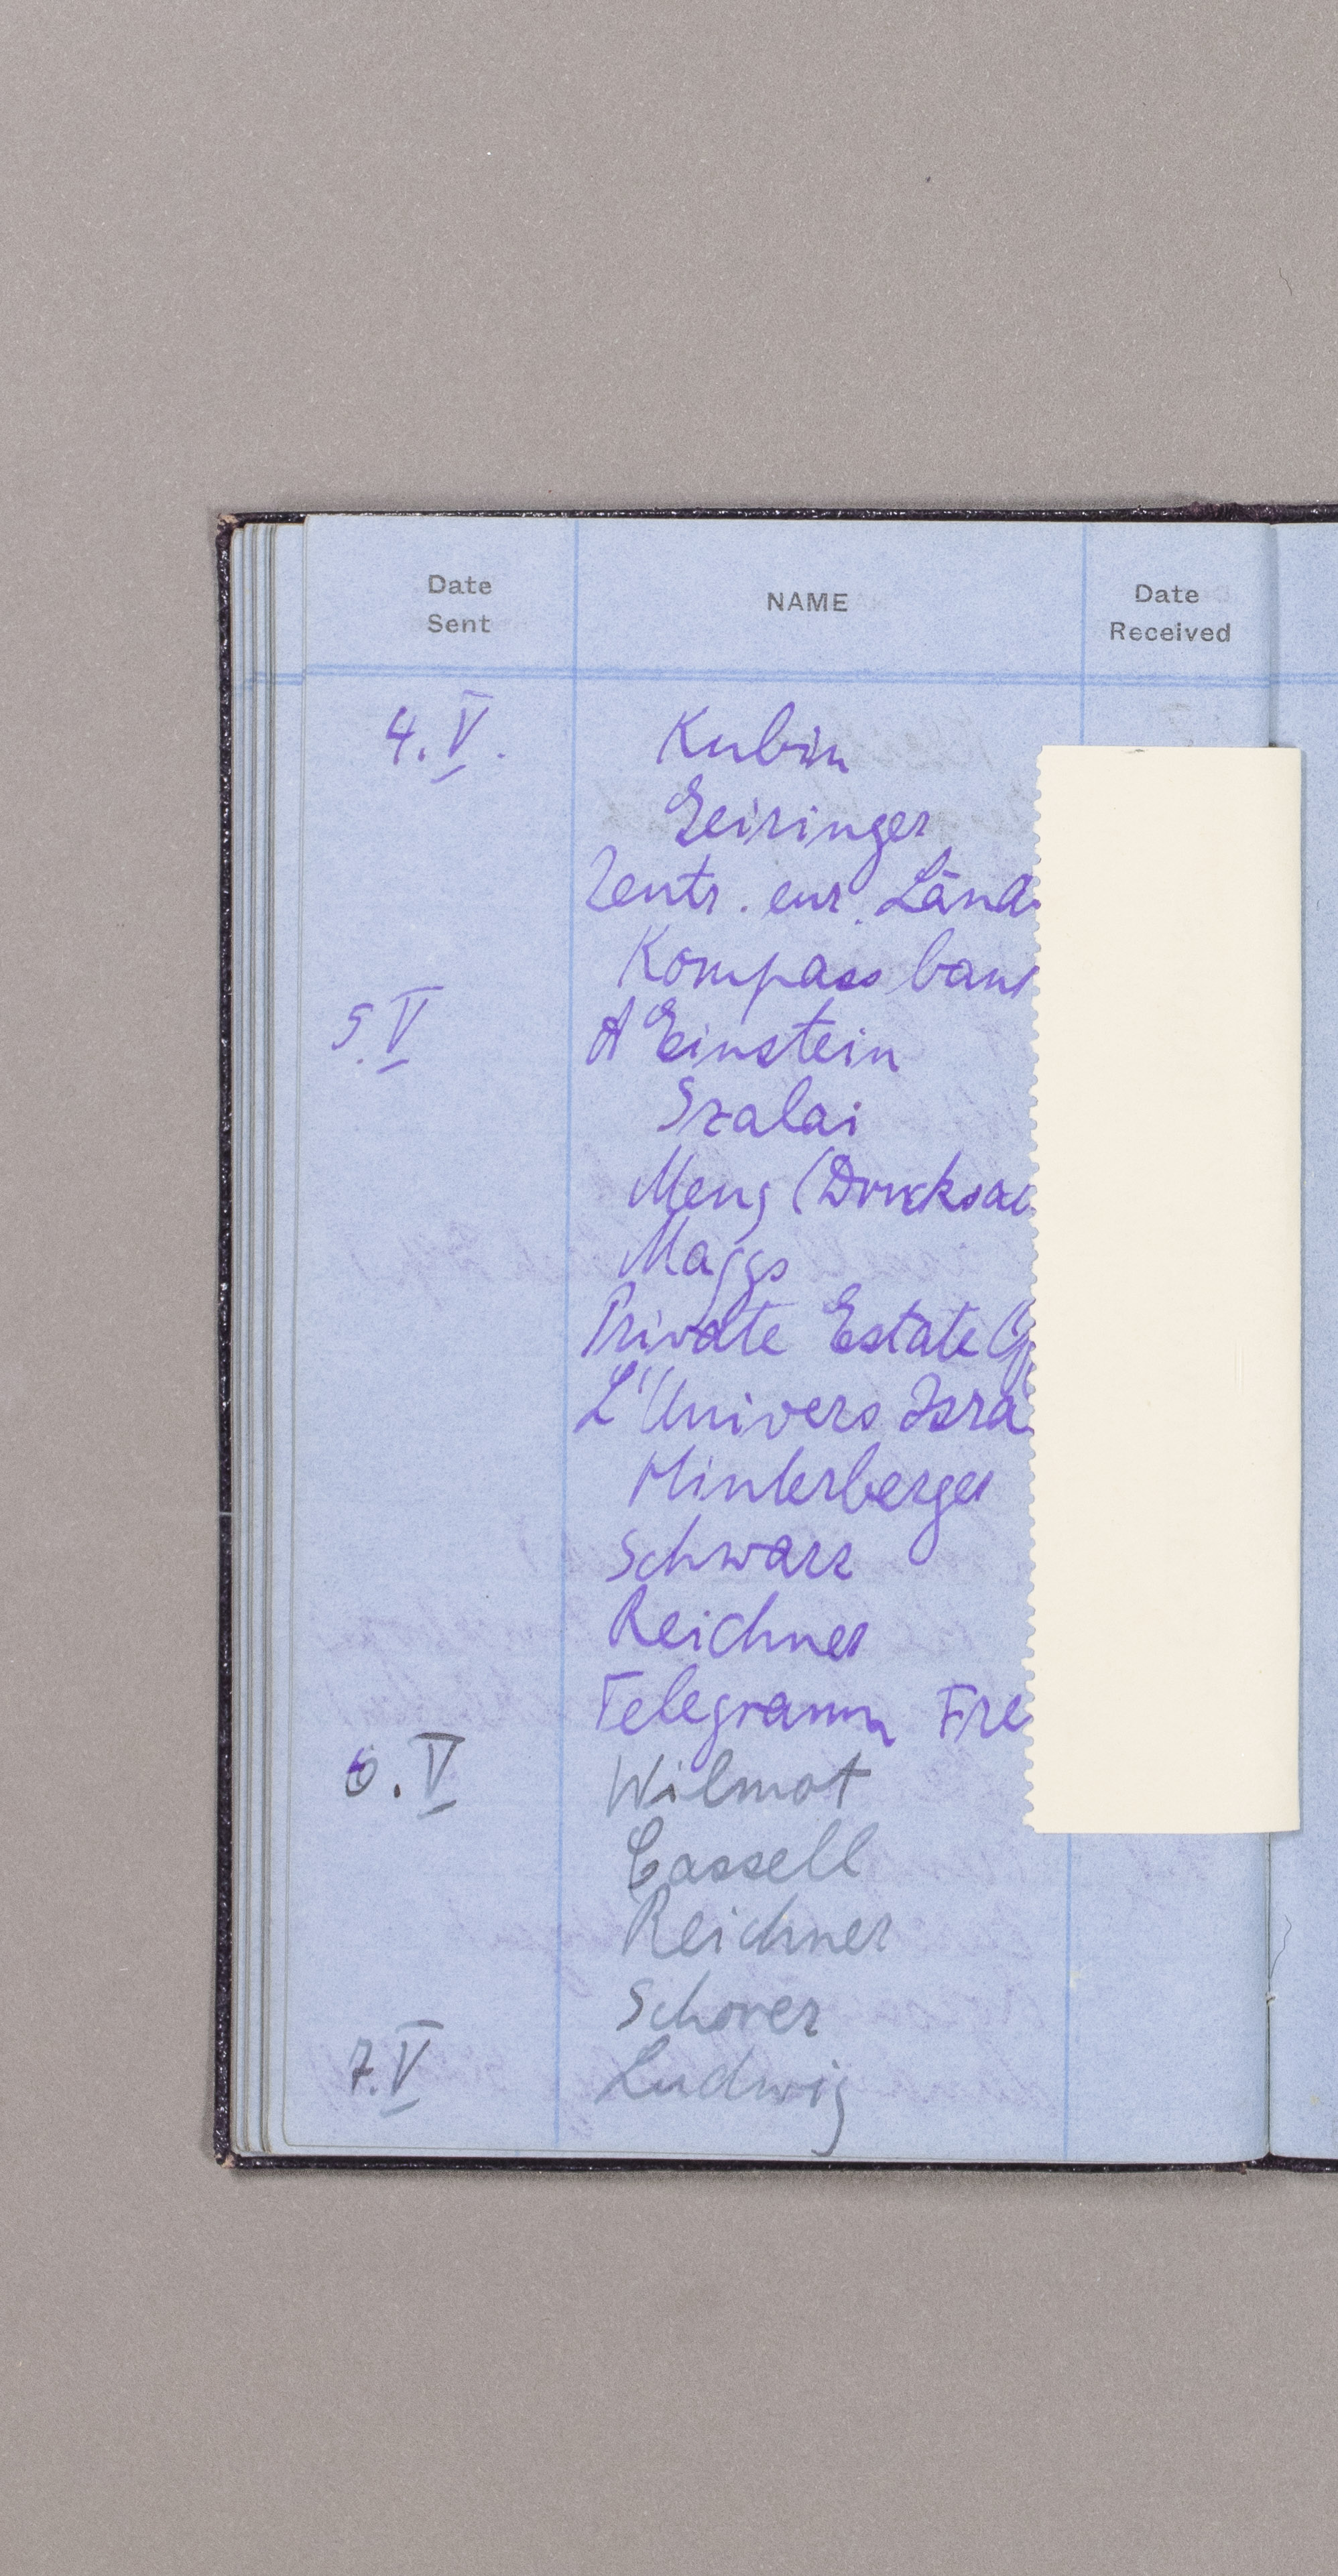 Date Sent NAME Date Received
4. V. Kubin
Geiringer
Zentr. eur. Länd
Kompass
5. V A Einstein
Szalai
Meng (Drucksac
Maggs
Private Estate
L'Univers Isra
Hinterberger
Schwarz
Reichner
Telegramm Fre
6. V Wilmot
Cassell
Reichner
7. V Ludwig